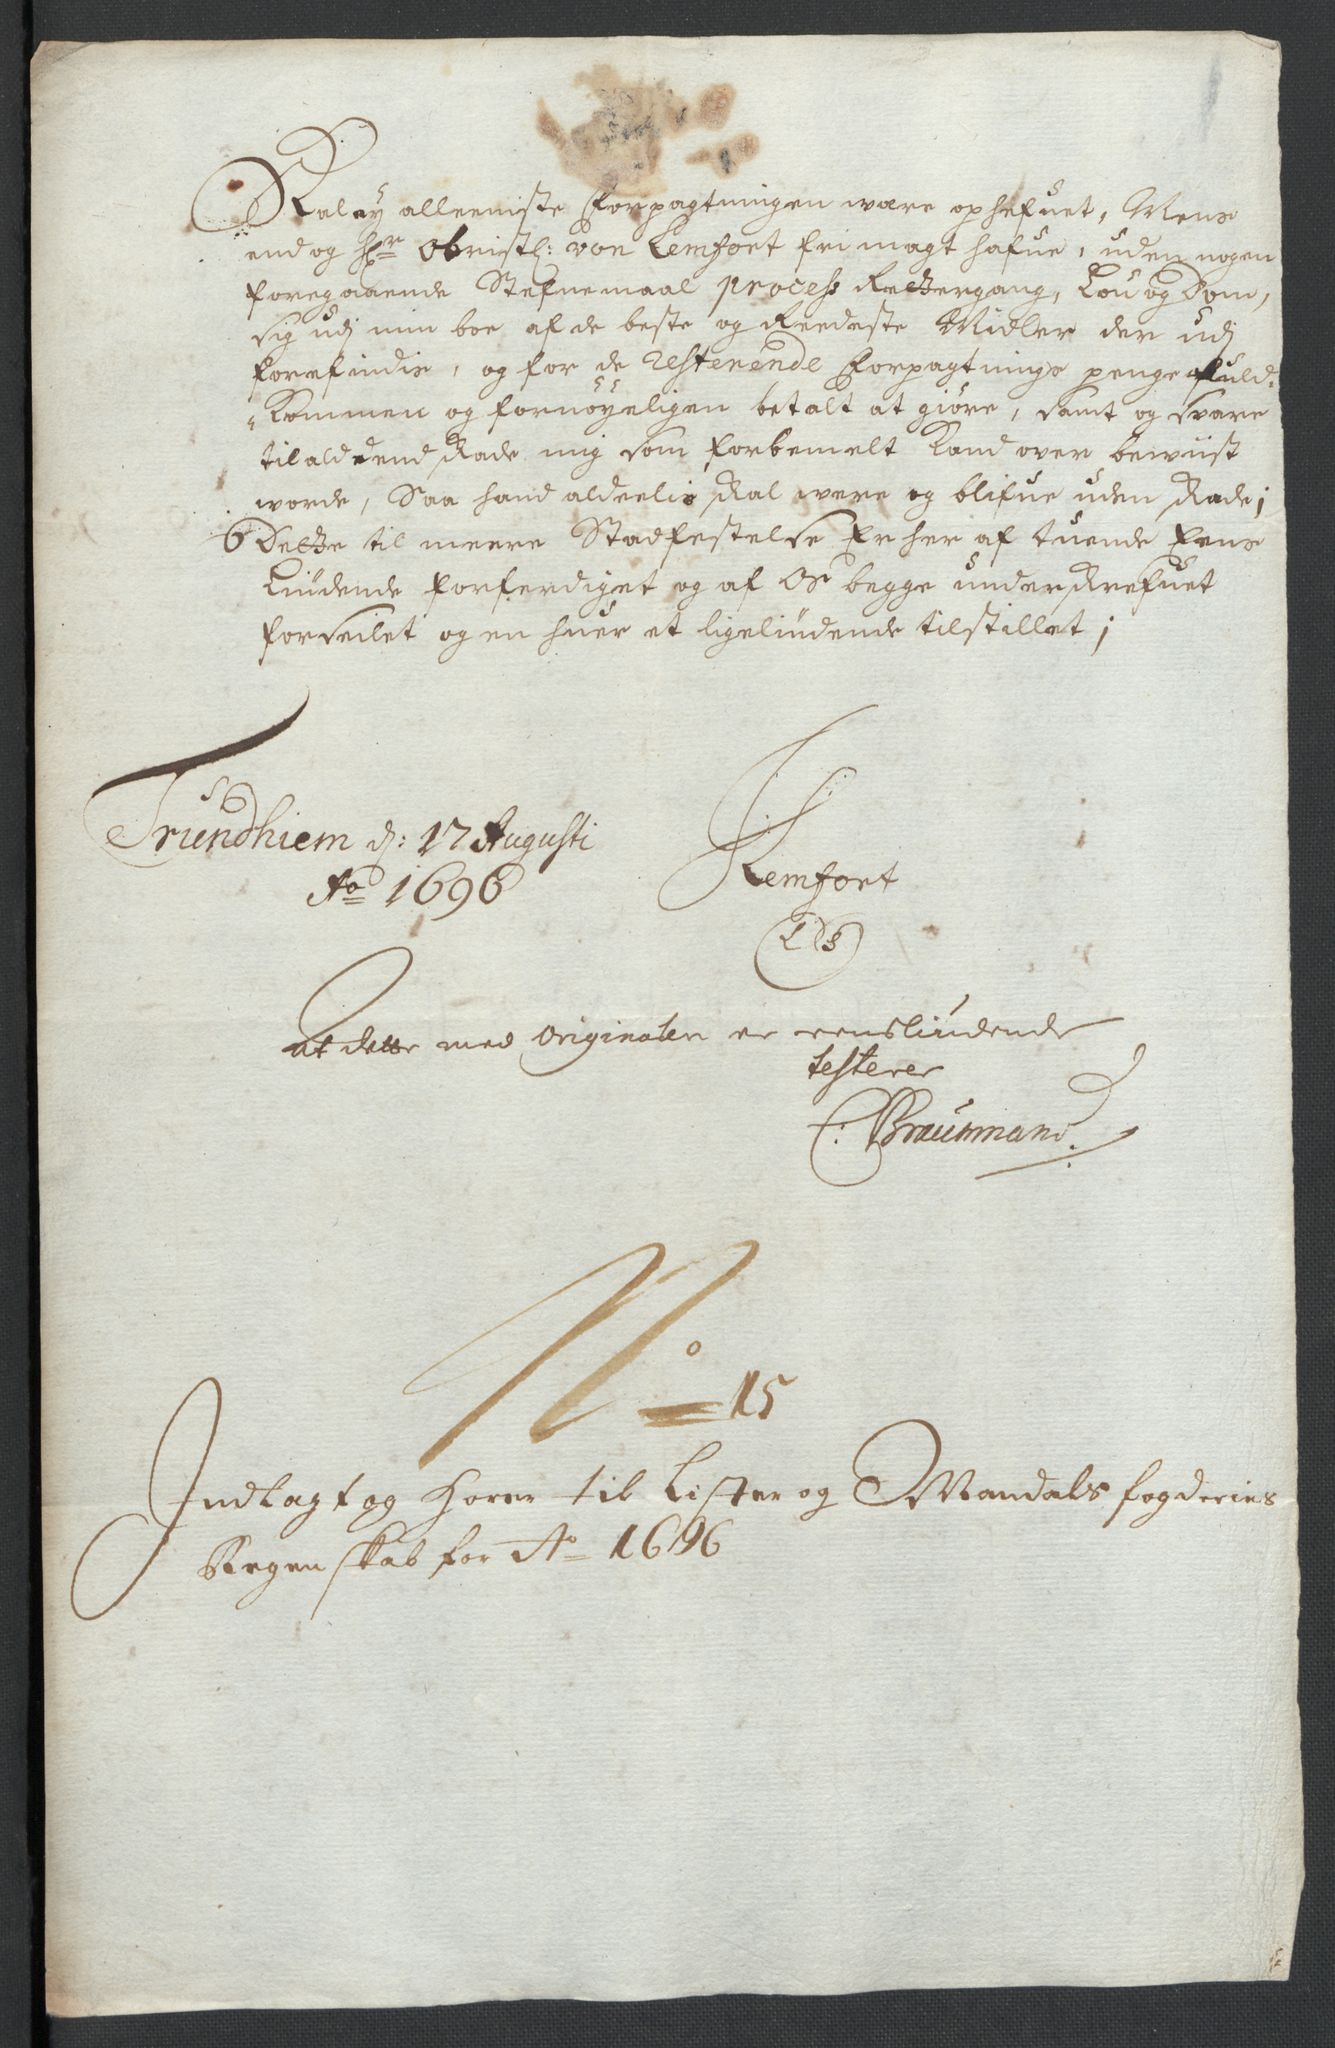 Skal ey alleeniste Forpagtningen were ophefuet, Mens
end og Hr Obristl: von Lemfort fri magt hafue, uden nogen
foregaaende Stefnemaal process Rettergang, Lou og Dom,
sig udj min boe af de beste og Reedeste Midler der udj
forefindis, og for de resterende Forpagtnings penge fuld-
kommen og fornøyeligen betalt at giøre, samt og svare
til ald dend skade mig som forbemelt kand over bewiist
worde, Saa hand aldeelis skal were og blifue uden skade;
6 Dette til meere Stadfestelse Er her af tuende Eens
Liudende forferdiget og af Os begge underskrefuet
forseilet og en huer et ligeliudende tilstillet;
Trundhiem d: 17 Augusti
Ao 1696
Lemfort
L S
At dette med originalen er eensliudende
testerer
C: Braunmand
No 15
Indlagt og hører til Lister og Mandals fogderies
Regenskab for Ao 1696